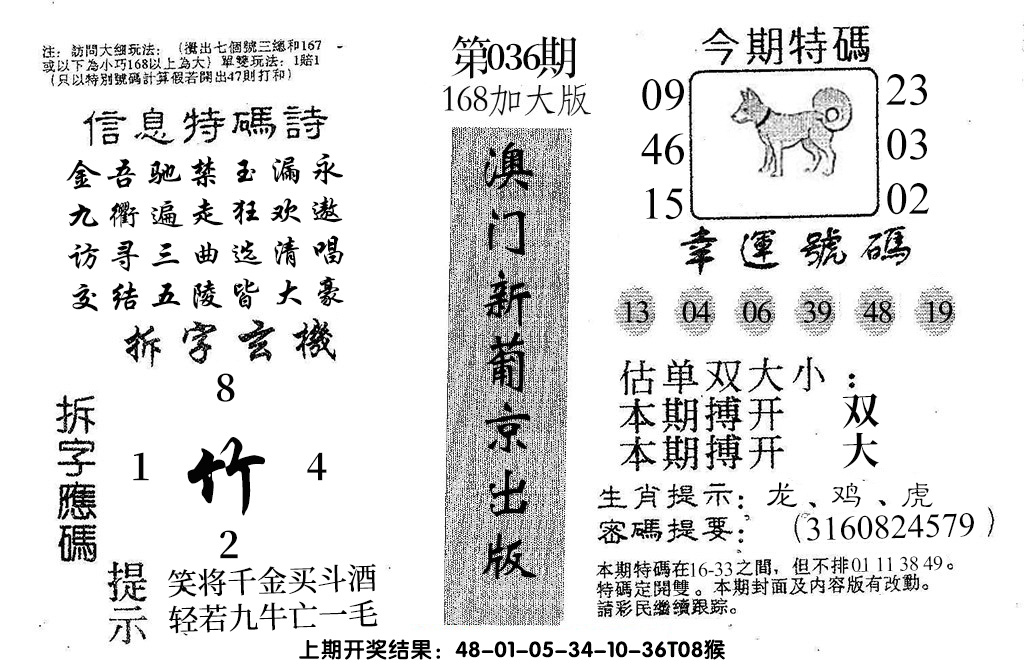 注：訪問大细玩法：（攪出七個號三總和167
或以下為小巧168以上為大）單雙玩法：1賠1
（只以特別號碼計算假若開出47則打和）
信息特碼詩
金吾驰禁玉漏永
九衢遍走狂欢遨
访寻三曲选清唱
交结五陵皆大豪
拆字玄機
8
1 竹 4
2
拆字應碼
提示
笑将千金买斗酒
轻若九牛亡一毛
第036期
168加大版
澳门新葡京出版
今期特碼
09 23
46 03
15 02
幸運號碼
13 04 06 39 48 19
估单双大小：
本期搏开 双
本期搏开 大
生肖提示：龙、鸡、虎
密碼提要：（3160824579）
本期特碼在16-33之間，但不排01 11 38 49。
特碼定開雙。本期封面及内容版有改動。
請彩民繼續跟踪。
上期开奖结果：48-01-05-34-10-36T08猴